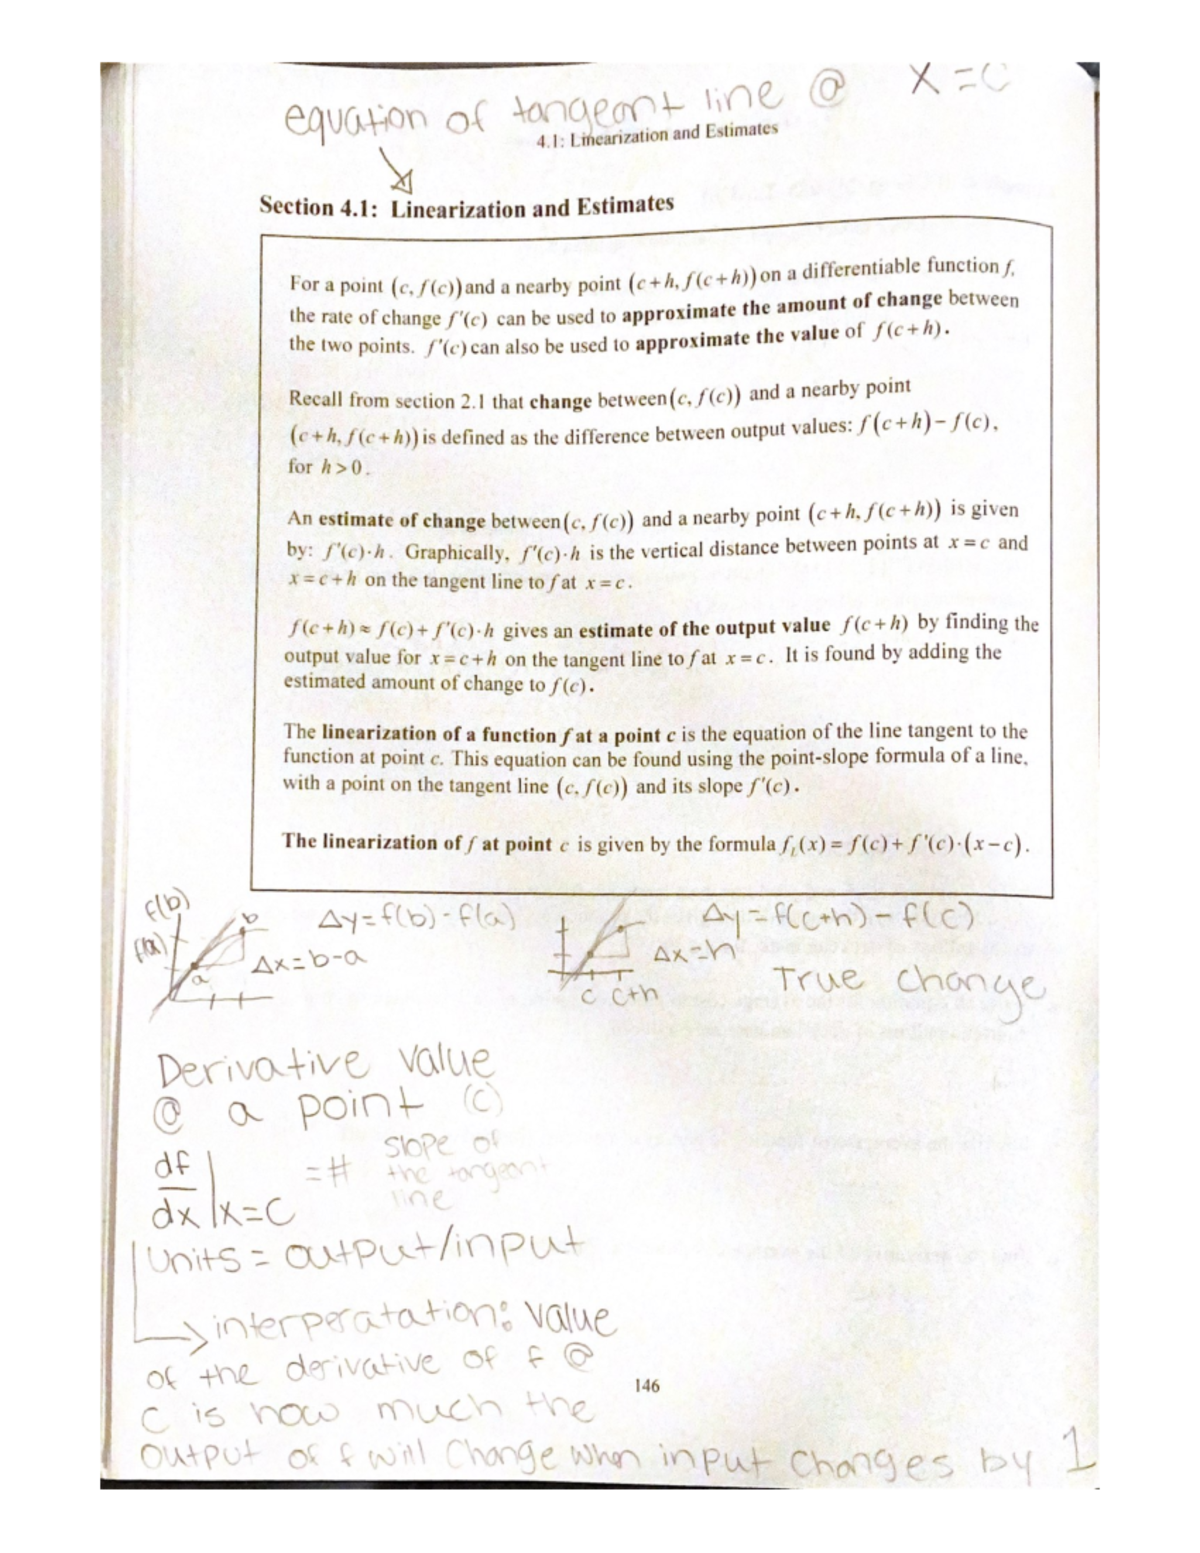 equation of tangeant line @ x=c
4.1: Linearization and Estimates
Section 4.1: Linearization and Estimates
For a point (c, f(c)) and a nearby point (c+h, f(c+h)) on a differentiable function f,
the rate of change f'(c) can be used to approximate the amount of change between
the two points. f'(c) can also be used to approximate the value of f(c+h).
Recall from section 2.1 that change between (c, f(c)) and a nearby point
(c+h, f(c+h)) is defined as the difference between output values: f(c+h)−f(c),
for h>0.
An estimate of change between (c, f(c)) and a nearby point (c+h, f(c+h)) is given
by: f'(c)·h. Graphically, f'(c)·h is the vertical distance between points at x=c and
x=c+h on the tangent line to f at x=c.
f(c+h)≈f(c)+f'(c)·h gives an estimate of the output value f(c+h) by finding the
output value for x=c+h on the tangent line to f at x=c. It is found by adding the
estimated amount of change to f(c).
The linearization of a function f at a point c is the equation of the line tangent to the
function at point c. This equation can be found using the point-slope formula of a line,
with a point on the tangent line (c, f(c)) and its slope f'(c).
The linearization of f at point c is given by the formula f_L(x)=f(c)+f'(c)·(x−c).
f(b)
f(a)
b
a
Δy=f(b)-f(a)
Δx=b-a
c c+h
Δy=f(c+h)-f(c)
Δx=h
True change
Derivative value
@ a point (c)
df
dx |x=c =#
slope of
the tangeant
line
Units = output/input
interperatation: value
of the derivative of f @
c is how much the
output of f will change when input changes by 1
146